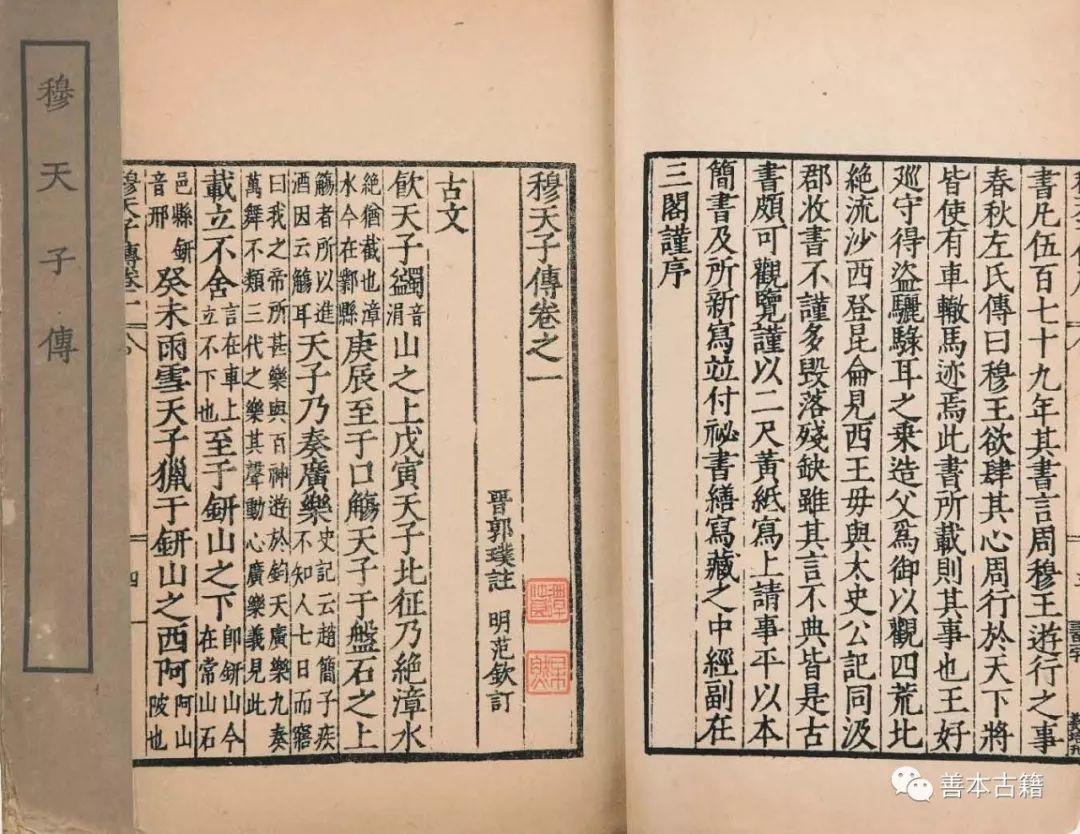 穆天子傳
書凡伍百七十九年其書言周穆王遊行之事
春秋左氏傳曰穆王欲肆其心周行於天下將
皆使有車轍馬迹焉此書所載則其事也王好
巡守得盜驪騄耳之乗造父爲御以觀四荒北
絶流沙西登昆侖見西王母與太史公記同汲
郡收書不謹多毀落殘缺雖其言不典皆是古
書頗可觀覽謹以二尺黃紙寫上請事平以本
簡書及所新寫竝付祕書繕寫藏之中經副在
三閣謹序
穆天子傳卷之一
晋郭璞註 明范欽訂
古文
飮天子蠲音涓山之上戊寅天子北征乃絶漳水
絶猶截也漳水今在鄴縣庚辰至于口觴天子于盤石之上
觴者所以進酒因云觴耳天子乃奏廣樂史記云趙簡子疾不知人七日而寤
曰我之帝所甚樂與百神遊於鈞天廣樂九奏萬舞不類三代之樂其聲動心廣樂義見此
載立不舍言在車上立不下也至于鈃山之下即鈃山今在常山石
邑縣鈃音邢癸未雨雪天子獵于鈃山之西阿阿山陂也
穆天子傳卷一
四
善本古籍